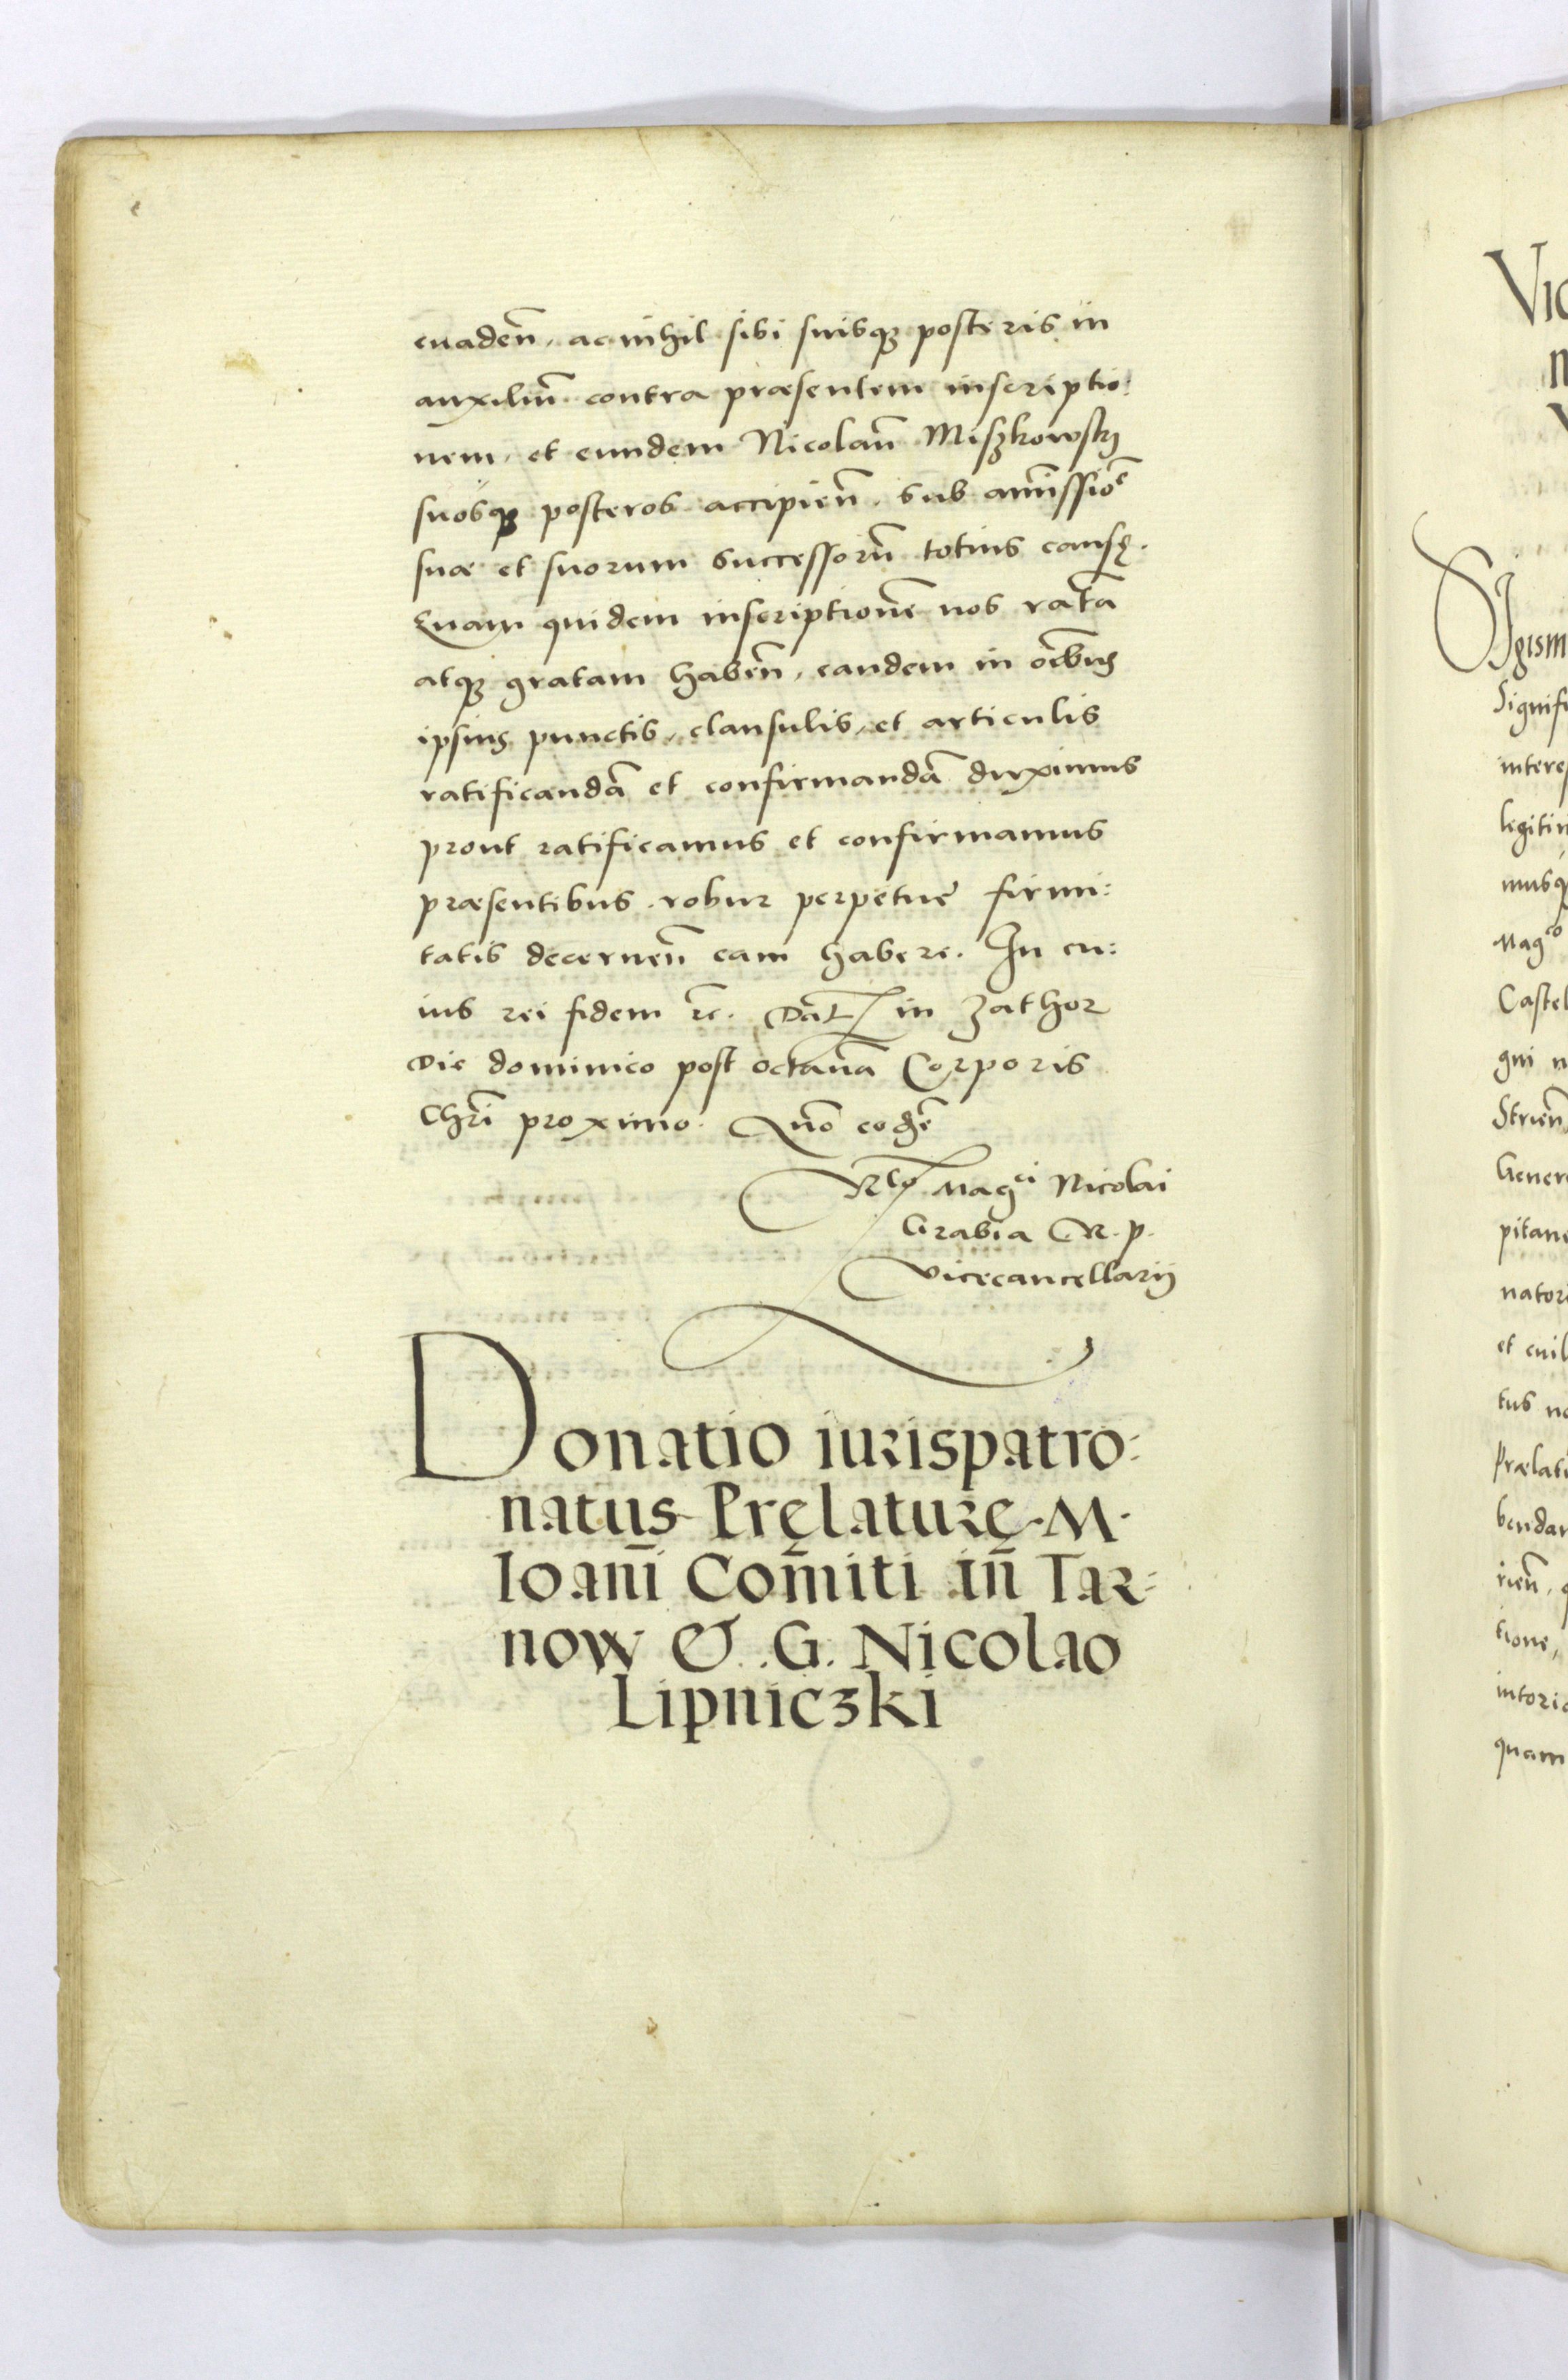 euadeñ, ac nihil sibi suisqꝫ posteris in
auxiliū contra præsentem inscriptio:
nem, et eundem Nicolaū Miszkowskÿ
suosqꝫ posteros accipieñ. sub amissiōe
suæ et suorum successorū totius causę.
Quam quidem inscriptionē nos ratā
atqꝫ gratam habeñ, eandem in oībus
ipsius punctis, clausulis, et articulis
ratificandā et confirmandā duximus
prout ratificamus et confirmamus
præsentibus. robur perpetue firmi:
tatis decerneñ eam habere. In cu:
ius rei fidem ꝛc. Dat̄ in Zathor
Die dominico post octauā Corporis
Chrī proximo. Quō eodē
Rlō Magci Nicolai
Grabia R. p.
Vicecancellarÿ
Donatio iurispatro:
natus Pręlaturę M.
Ioañi Com̄iti iñ Tar=
now & G. Nicolao
Lipniczki
Sigism
Signifi
legitim
musqꝫ
Magco
Castel
gni n
Strieñ
Gener
pitane
nator
et cuil
tus no
Prælat
bendar
rieñ,
tione,
intoria
quam